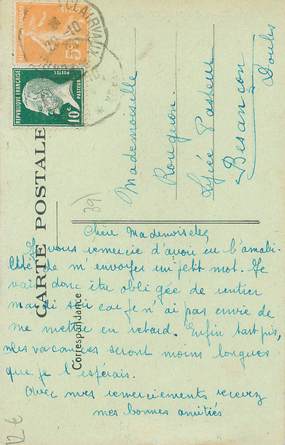 CLAIRVAUX
5c
RÉPUBLIQUE FRANÇAISE
PASTEUR
10c
POSTES
CARTE POSTALE
Correspondance
Mademoiselle
Rougeron
Lycée Pasteur
Besançon
Doubs
39
Chère Mademoiselle,
Je vous remercie d'avoir eu l'amabi-
lité de m'envoyer un petit mot. Je
vais donc être obligée de rentrer
mardi soir car je n'ai pas envie de
me mettre en retard. Enfin tant pis,
mes vacances seront moins longues
que je l'espérais.
Avec mes remerciements recevez
mes bonnes amitiés
12 €